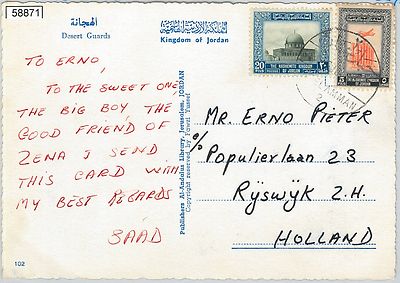 58871
الهجانة
Desert Guards
المملكة الأردنية الهاشمية
Kingdom of Jordan
TO ERNO,
TO THE SWEET ONE
THE BIG BOY THE
GOOD FRIEND OF
ZENA I SEND
THIS CARD WITH
MY BEST REGARDS
SAAD
102
Publishers Al-Andalus Library, Jerusalem, JORDAN
Copyright reserved by Fawzi Yussef
20
THE HASHEMITE KINGDOM
OF JORDAN
٢٠
THE HASHEMITE KINGDOM
OF JORDAN
AMMAN
Mr. ERNO PIETER
c/o
Populierlaan 23
Rÿswÿk Z.H.
HOLLAND